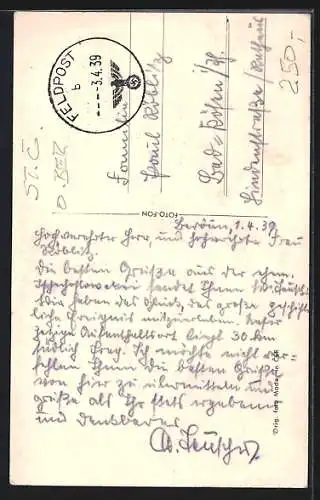 FELDPOST
b
---3.4.39
Familie
Paul Röblitz
Bad-Kösen i/Th.
Lindenstraße
250,-
ST.Č.
FOTO-FON
Beroun, 1.4.39.
Hochverehrter Herr und hochverehrte Frau
Röblitz.
Die besten Grüße aus der ehem.
Tschechoslowakei sendet Ihnen
Wir haben das Glück, das große geschicht-
liche Ereignis mitzuerleben. Unser
jetzige Aufenthaltsort liegt 30 km
südlich Prag. Ich möchte nicht ver-
fehlen Ihnen die besten Grüße
von hier zu übermitteln und
grüße als Ihr stets ergebener
und dankbarer
Orig. foto